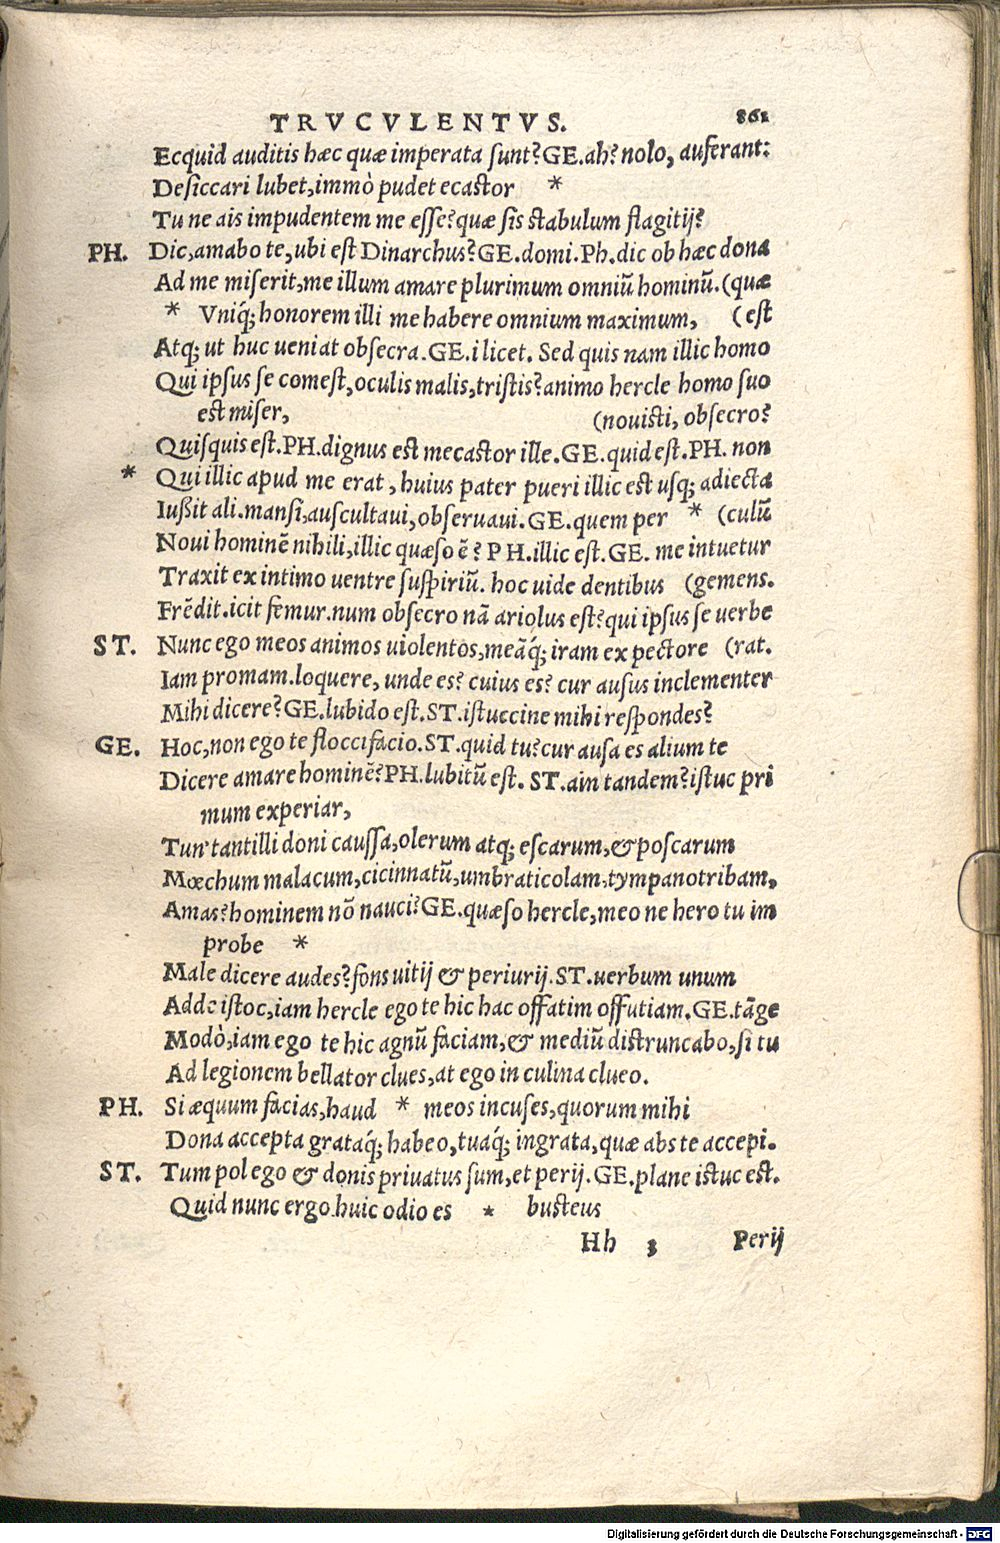 TRVCVLENTVS. 861
Ecquid auditis hæc quæ imperata sunt? GE. ah? nolo, auferant:
Desiccari lubet, immò pudet ecastor *
Tu ne ais impudentem me esse? quæ sis stabulum flagitij?
PH. Dic, amabo te, ubi est Dinarchus? GE. domi. Ph. dic ob hæc dona
Ad me miserit, me illum amare plurimum omniũ hominũ. (quæ
* Vniq́; honorem illi me habere omnium maximum, (est
Atq; ut huc ueniat obsecra. GE. ilicet. Sed quis nam illic homo
Qui ipsus se comest, oculis malis, tristis? animo hercle homo suo
est miser, (nouisti, obsecro?
Quisquis est. PH. dignus est mecastor ille. GE. quid est. PH. non
* Qui illic apud me erat, huius pater pueri illic est usq; adiecta
Iußit ali. mansi, auscultaui, obseruaui. GE. quem per * (culũ
Noui hominẽ nihili, illic quæso ẽ? PH. illic est. GE. me intuetur
Traxit ex intimo uentre suspiriũ. hoc uide dentibus (gemens.
Frẽdit. icit femur. num obsecro nã ariolus est? qui ipsus se uerbe
ST. Nunc ego meos animos uiolentos, meãq́; iram ex pectore (rat.
Iam promam. loquere, unde es? cuius es? cur ausus inclementer
Mihi dicere? GE. lubido est. ST. istuccine mihi respondes?
GE. Hoc, non ego te floccifacio. ST. quid tu? cur ausa es alium te
Dicere amare hominẽ? PH. lubitũ est. ST. ain tandem? istuc pri
mum experiar,
Tun' tantilli doni caussa, olerum atq; escarum, & poscarum
Mœchum malacum, cicinnatũ, umbraticolam, tympanotribam,
Amas? hominem nõ nauci? GE. quæso hercle, meo ne hero tu im
probe *
Male dicere audes? fons uitij & periurij. ST. uerbum unum
Adde istoc, iam hercle ego te hic hac offatim offutiam. GE. tãge
Modò, iam ego te hic agnũ faciam, & mediũ distruncabo, si tu
Ad legionem bellator clues, at ego in culina clueo.
PH. Si æquum facias, haud * meos incuses, quorum mihi
Dona accepta grataq́; habeo, tuaq́; ingrata, quæ abs te accepi.
ST. Tum pol ego & donis priuatus sum, et perij. GE. plane istuc est.
Quid nunc ergo huic odio es * busteus
Hh 3 Perij
Digitalisierung gefördert durch die Deutsche Forschungsgemeinschaft - DFG